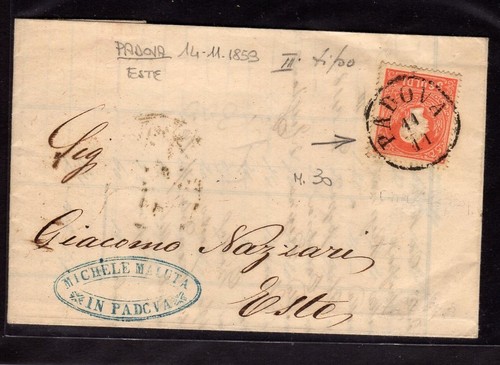 PADOVA 14-11.1859 III. tipo
ESTE
SOLDI
PADOVA
14
11
Sig
M. 30
Giacomo Nazzari
Este
MICHELE MALUTA
IN PADOVA